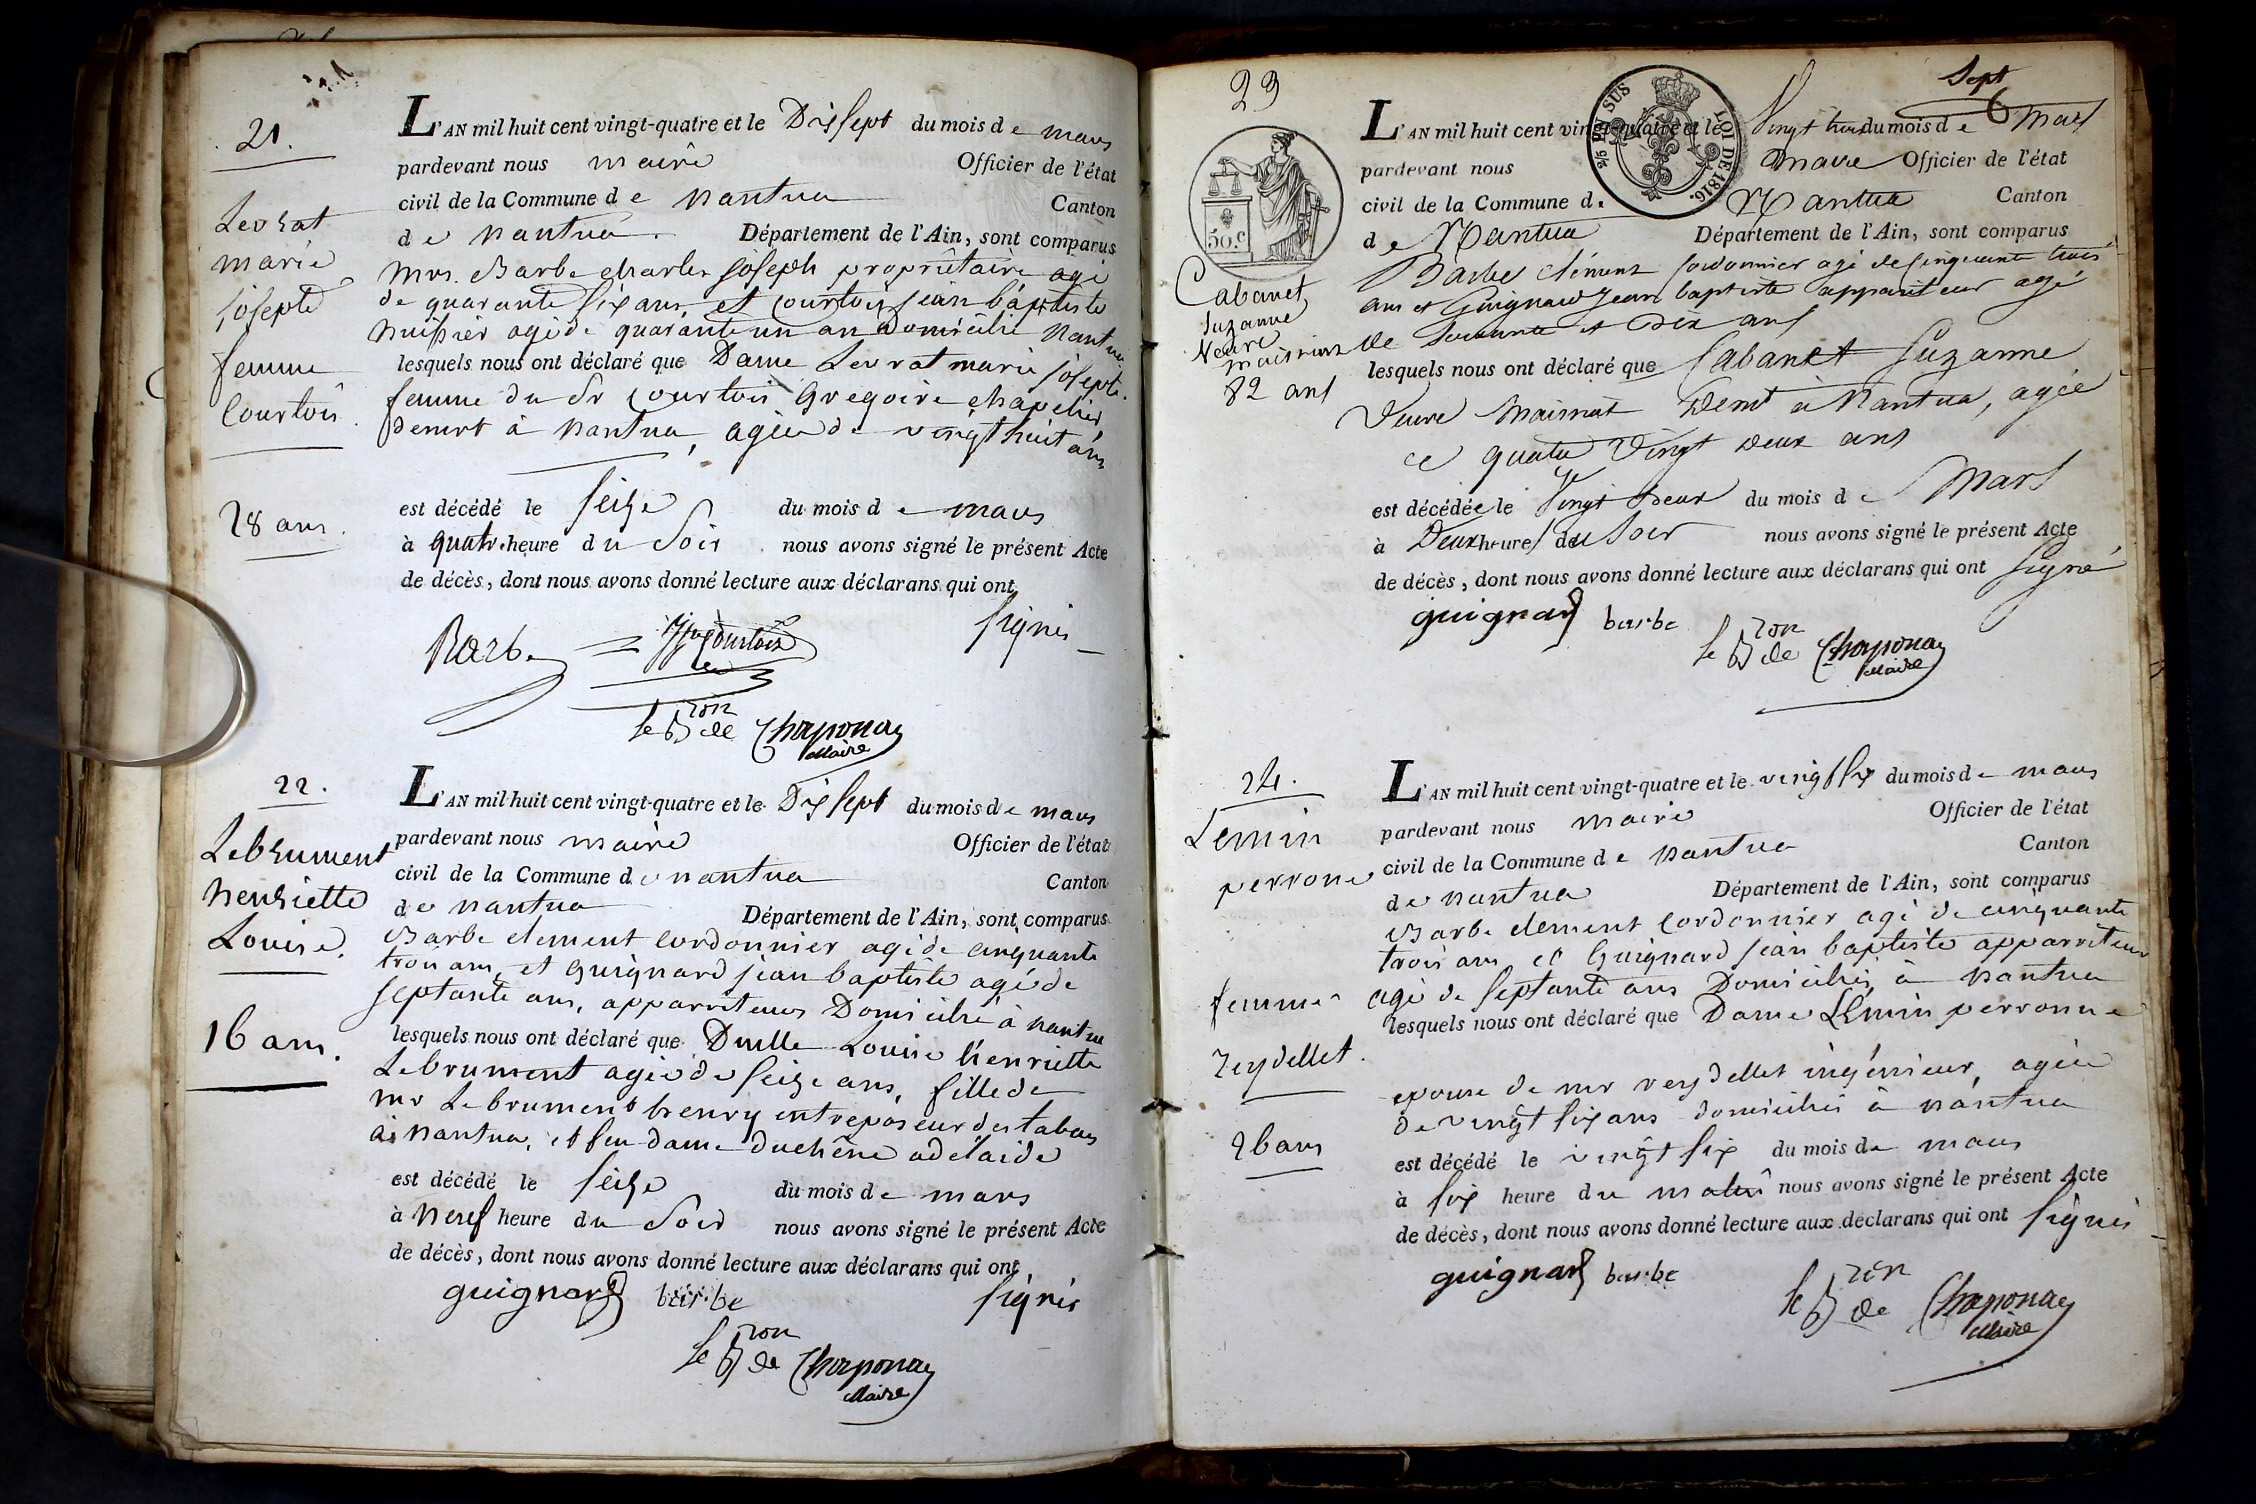 21.
Levrat
marie
josepte
femme
Courtois
28 ans.
L'AN mil huit cent vingt-quatre et le Dix sept du mois de mars
pardevant nous maire Officier de l'état
civil de la Commune de nantua Canton
de nantua. Département de l'Ain, sont comparus
mrs. Barbe charles joseph propriétaire agé
de quarante six ans, et courtois jean baptiste
huissier agé de quarante un an Domicilié nantua
lesquels nous ont déclaré que Dame Levrat marie josepte.
femme du Sr courtois Gregoire chapelier,
demrt à nantua, agée de vingt huit ans
est décédé le seize du mois de mars
à quatre heure du soir nous avons signé le présent Acte
de décès, dont nous avons donné lecture aux déclarans qui ont
signés
Barbe Courtois
le Bron de Chaponay
Maire
22.
Lebrument
henriette
Louise.
16 ans.
L'AN mil huit cent vingt-quatre et le Dix sept du mois de mars
pardevant nous maire Officier de l'état
civil de la Commune de nantua Canton
de nantua Département de l'Ain, sont comparus
Barbe clement cordonnier agé de cinquante
trois ans, et Guignard jean baptiste agé de
septante ans, apparriteur Domicilié à nantua
lesquels nous ont déclaré que Dmlle Louise henriette
Lebrument agée de seize ans, fille de
mr Lebrument henry entreposeur des tabacs
à nantua, et feu dame duchêne adelaide
est décédé le seize du mois de mars
à neuf heure du soir nous avons signé le présent Acte
de décès, dont nous avons donné lecture aux déclarans qui ont
signés
guignard barbe
le Bron de Chaponay
Maire
23
50.c
Cabanet
Suzanne
Veuve
82 ans
2/5 EN SUS
LOI DE 1816.
Sept
L'AN mil huit cent vingt-quatre et le Vingt trois du mois de Mars
pardevant nous Maire Officier de l'état
civil de la Commune de Nantua Canton
de Nantua Département de l'Ain, sont comparus
Barbe Clément Cordonnier agé de cinquante trois
ans et Guignard Jean baptiste appariteur agé
de soixante et dix ans
lesquels nous ont déclaré que Cabanet Suzanne
Veuve Maissiat Demt à Nantua, agée
de quatre Vingt deux ans
est décédée le Vingt Deux du mois de Mars
à Deux heures du Soir nous avons signé le présent Acte
de décès, dont nous avons donné lecture aux déclarans qui ont Signé
guignard barbe
le Bron de Chaponay
Maire
24.
Lemin
perrone
femme
reydellet.
26 ans
L'AN mil huit cent vingt-quatre et le vingt six du mois de mars
pardevant nous maire Officier de l'état
civil de la Commune de nantua Canton
de nantua Département de l'Ain, sont comparus
Barbe clement cordonnier agé de cinquante
trois ans et Guignard jean baptiste apparriteur
agé de septante ans Domiciliés à nantua
lesquels nous ont déclaré que Dame Lemin perronne
epouse de mr reydellet ingénieur, agée
de vingt six ans domiciliés à nantua
est décédé le vingt six du mois de mars
à six heure du matin nous avons signé le présent Acte
de décès, dont nous avons donné lecture aux déclarans qui ont signés
guignard barbe
le Bron de Chaponay
Maire